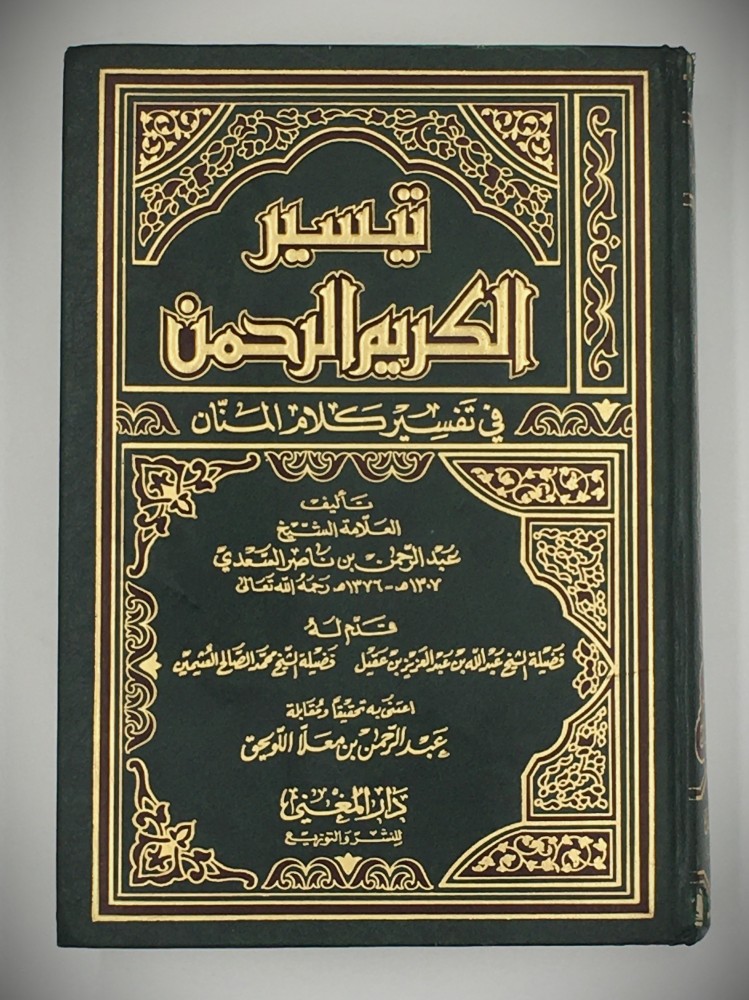 تيسير
الكريم الرحمن
في تفسير كلام المنّان
تأليف
العلّامة الشيخ
عبد الرحمن بن ناصر السعدي
١٣٠٧هـ - ١٣٧٦هـ رحمه الله تعالى
قدّم له
فضيلة الشيخ عبد الله بن عبد العزيز بن عقيل فضيلة الشيخ محمد الصالح العثيمين
اعتنى به تحقيقاً ومقابلة
عبد الرحمن بن معلا اللويحق
دار المغني
للنشر والتوزيع